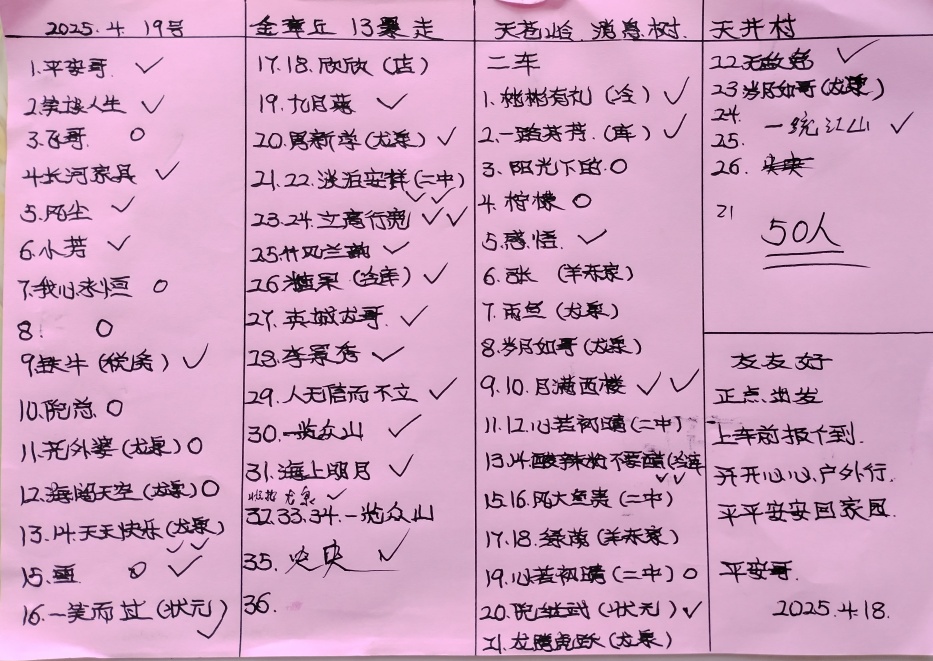 2025.4.19号
1.平安哥 ✓
2.笑接人生 ✓
3.飞哥. O
4.长河家具 ✓
5.风尘 ✓
6.小芳 ✓
7.我心永恒 O
8. O
9.铁牛(税务) ✓
10.院总 O
11.光外婆(龙泉) O
12.海阔天空(龙泉) O
13.14.天天快乐(龙泉) ✓✓
15.雪 O ✓
16.一笑而过(状元) ✓
金章丘 13暴走
17.18.欣欣(店)
19.九月菊 ✓
20.男新学(龙泉) ✓
21.22.淡泊安静(二中) ✓✓
23.24.立高行宽 ✓✓
25.竹风兰韵 ✓
26.糖果(冷库) ✓
27.英城龙哥. ✓
28.李景秀 ✓
29.人无信而不立 ✓
30.一览众山 ✓
31.海上明月 ✓
龙泉 ✓
32.33.34.一览众山
35.央央 ✓
36.
天苍岭 消息树.
二车
1.彬彬有礼(冷) ✓
2.一路芬芳.(库) ✓
3.阳光下的 O
4.柠檬 O
5.感悟. ✓
6.张(羊东家)
7.雨鱼(龙泉)
8.岁月如哥(龙泉)
9.10.月满西楼 ✓✓
11.12.心若初晴(二中)
13.14.酸辣粉不要醋(冷库 ✓✓
15.16.风大鱼贵(二中)
17.18.绿茵(羊东家)
19.心若初晴(二中) O
20.院继武(状元) ✓
21.龙腾虎跃(龙泉)
天井村
22.无敌 ✓
23岁月如哥(龙泉)
24.
25. 一统江山 ✓
26.
21
50人
友友好
正点出发
上车前报个到.
开开心心户外行.
平平安安回家园.
平安哥.
2025.4.18.